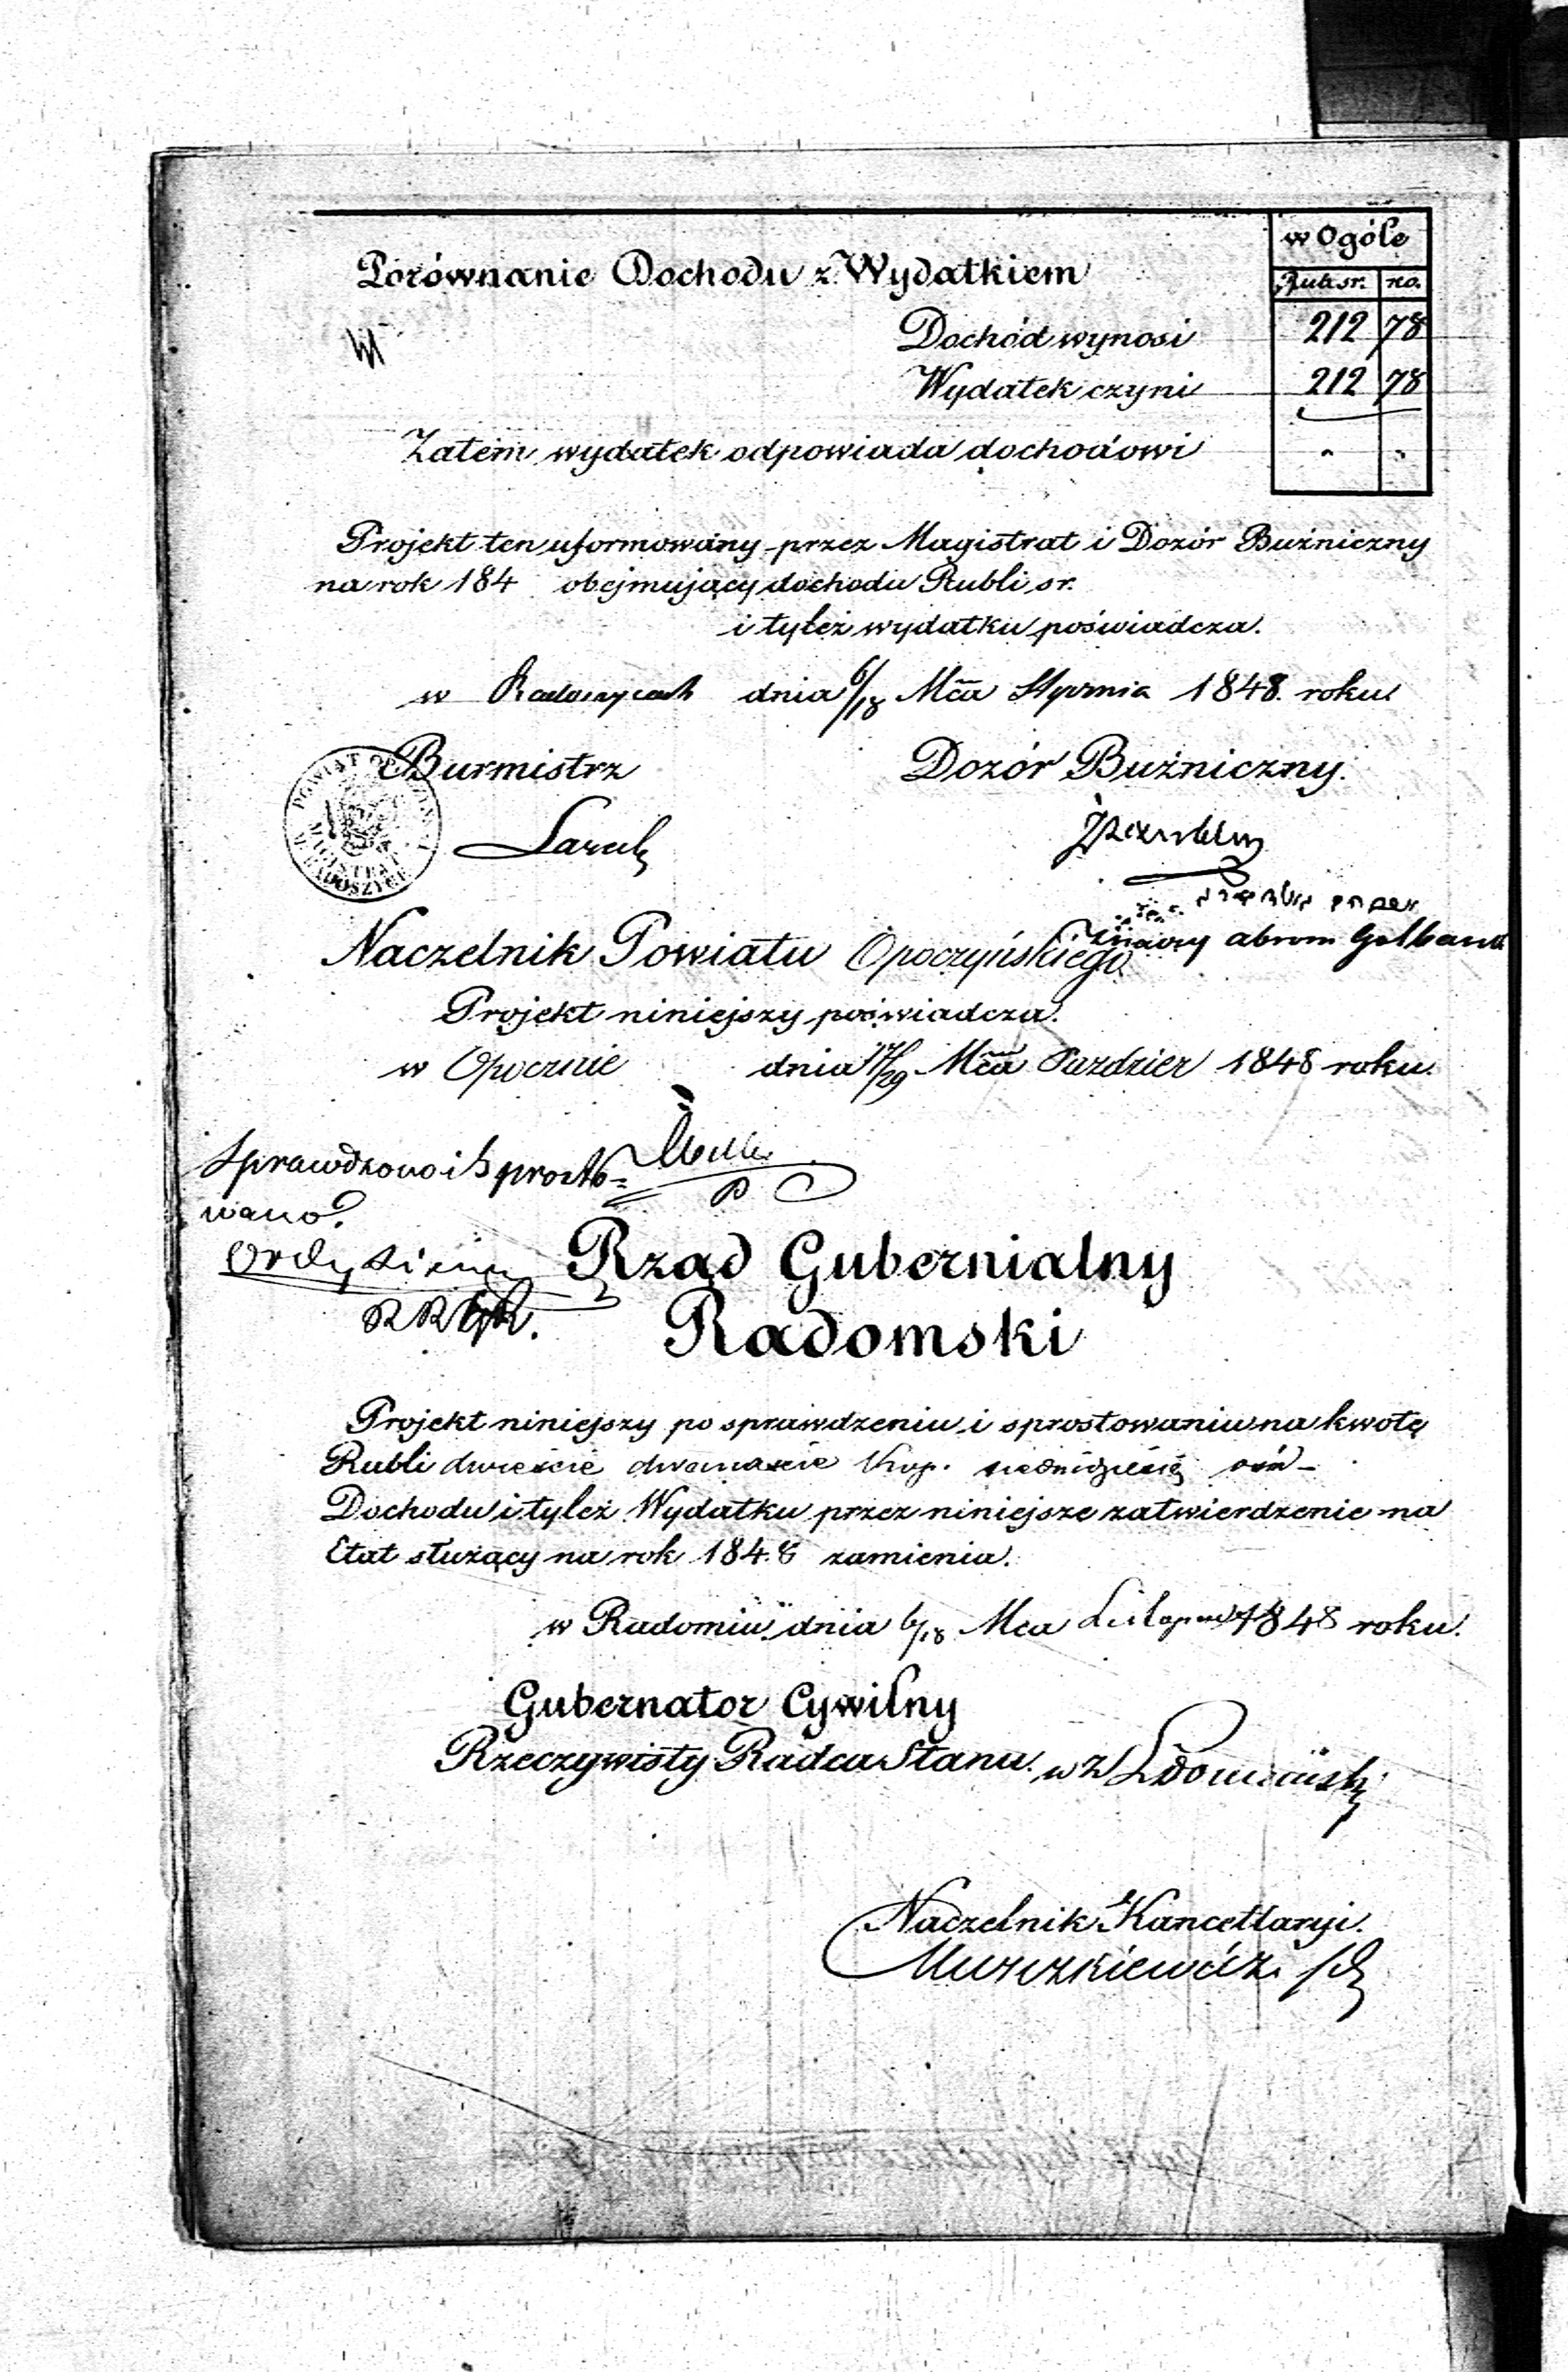 w Ogóle
Porównanie Dochodu z Wydatkiem
Rub. sr. ko.
Dochód wynosi 212 78
Wydatek czyni 212 78
Zatem wydatek odpowiada dochodowi " "
Projekt ten uformowany przez Magistrat i Dozór Buźniczny
na rok 184 obejmujący dochodu Rubli sr.
i tyleż wydatku poświadcza.
w Radoszycach dnia 6/18 Mca Stycznia 1848 roku
Burmistrz Dozór Buźniczny.
POWIAT OPOCZYŃSKI
MAGISTRAT
M. RADOSZYCE
abram Gelbard
Naczelnik Powiatu Opoczyńskiego
Projekt niniejszy poświadcza.
w Opocznie dnia 17/29 Mca Pazdzier 1848 roku.
Sprawdzono i Sprosto=
wano.
Rząd Gubernialny
Radomski
Projekt niniejszy po sprawdzeniu i sprostowaniu na kwotę
Rubli dwieście dwanaście Kop. siedmdziesiąt ośm
Dochodu i tyleż Wydatku przez niniejsze zatwierdzenie na
Etat służący na rok 1848 zamienia.
w Radomiu dnia 6/18 Mca Listopada 1848 roku.
Gubernator Cywilny
Rzeczywisty Radca Stanu. w z
Naczelnik Kancellaryi.